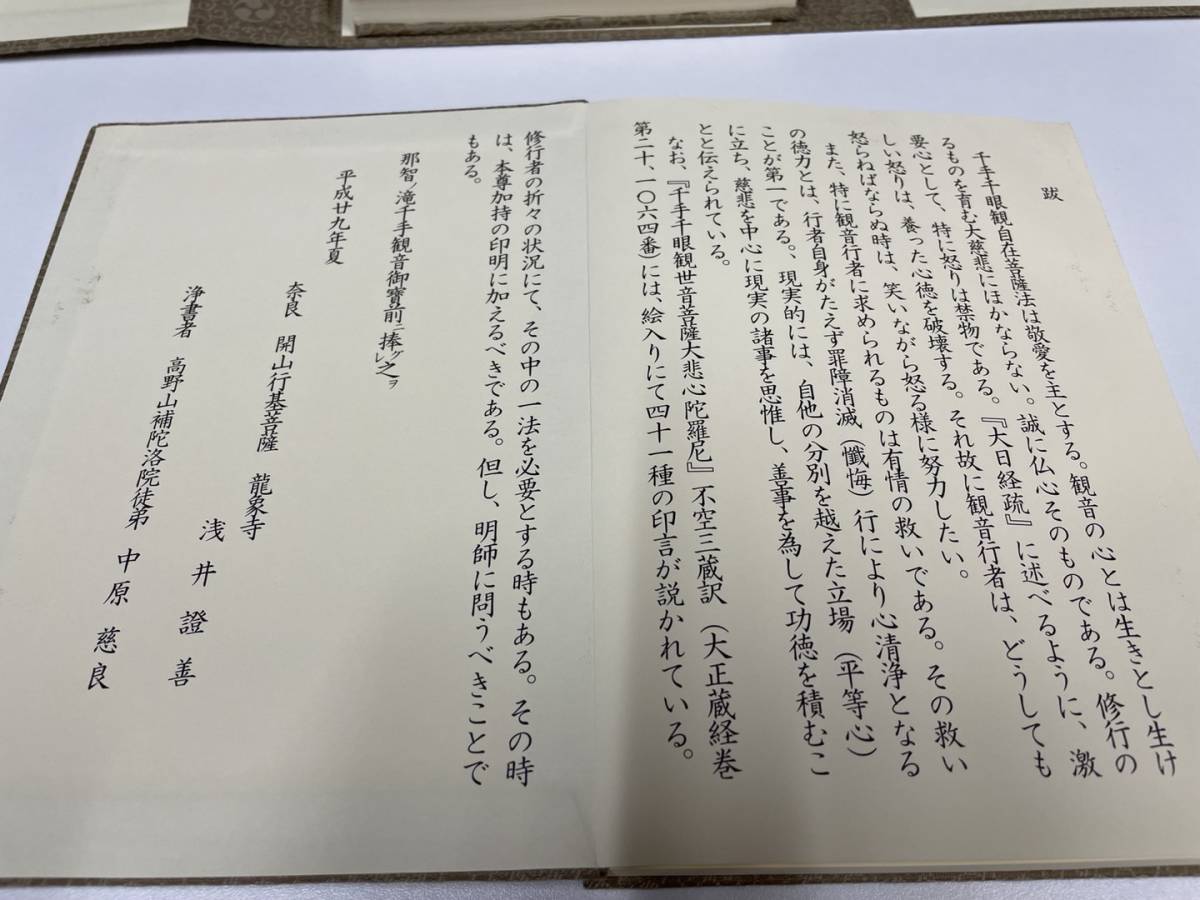 跋
千手千眼観自在菩薩法は敬愛を主とする。観音の心とは生きとし生け
るものを育む大慈悲にほかならない。誠に仏心そのものである。修行の
要心として、特に怒りは禁物である。『大日経疏』に述べるように、激
しい怒りは、養った心徳を破壊する。それ故に観音行者は、どうしても
怒らねばならぬ時は、笑いながら怒る様に努力したい。
また、特に観音行者に求められるものは有情の救いである。その救い
の徳力とは、行者自身がたえず罪障消滅（懺悔）行により心清浄となる
ことが第一である。、現実的には、自他の分別を越えた立場（平等心）
に立ち、慈悲を中心に現実の諸事を思惟し、善事を為して功徳を積むこ
とと伝えられている。
なお、『千手千眼観世音菩薩大悲心陀羅尼』不空三蔵訳（大正蔵経巻
第二十、一〇六四番）には、絵入りにて四十一種の印言が説かれている。
修行者の折々の状況にて、その中の一法を必要とする時もある。その時
は、本尊加持の印明に加えるべきである。但し、明師に問うべきことで
もある。
那智ノ滝千手観音御寳前ニ捧グレ之ヲ
平成廿九年夏
奈良 開山行基菩薩 龍象寺
浅井證善
浄書者 高野山補陀洛院徒弟 中原慈良